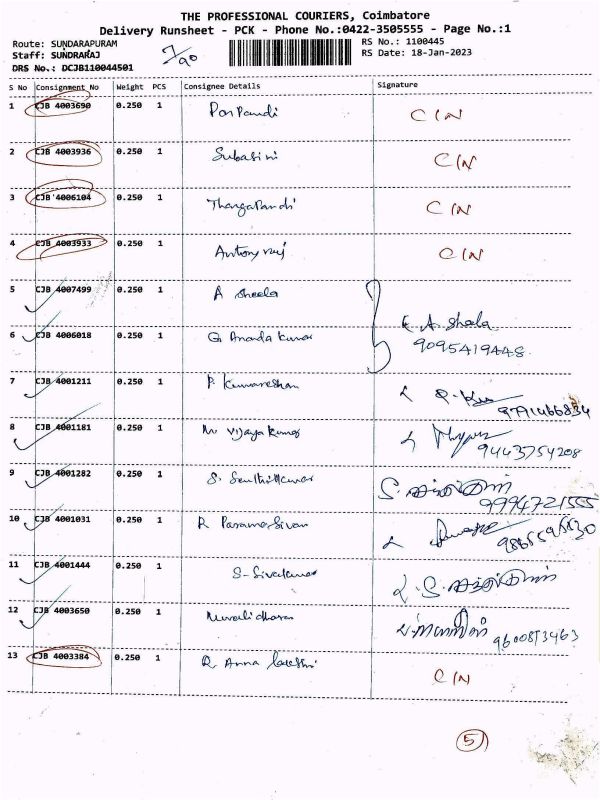 THE PROFESSIONAL COURIERS, Coimbatore
Delivery Runsheet - PCK - Phone No.:0422-3505555 - Page No.:1
Route: SUNDARAPURAM RS No.: 1100445
Staff: SUNDRARAJ RS Date: 18-Jan-2023
DRS No.: DCJB110044501
7/90
S No Consignment No Weight PCS Consignee Details Signature
1 CJB 4003690 0.250 1 PonPandi CIN
2 CJB 4003936 0.250 1 Subasini CIN
3 CJB 4006104 0.250 1 ThangaPandi CIN
4 CJB 4003933 0.250 1 Antony raj CIN
5 CJB 4007499 0.250 1 A Sheela
A Sheela
6 CJB 4006018 0.250 1 G. Ananda Kumar 9095419448
7 CJB 4001211 0.250 1 P. Kumareshan 9791466834
8 CJB 4001181 0.250 1 M Vijaya Kumar 9443754208
9 CJB 4001282 0.250 1 S. Senthilkumar 9994721555
10 CJB 4001031 0.250 1 R Paramasivan
11 CJB 4001444 0.250 1 S-Sivakumar
12 CJB 4003650 0.250 1 Muralidharan
13 CJB 4003384 0.250 1 R. Anna CIN
5